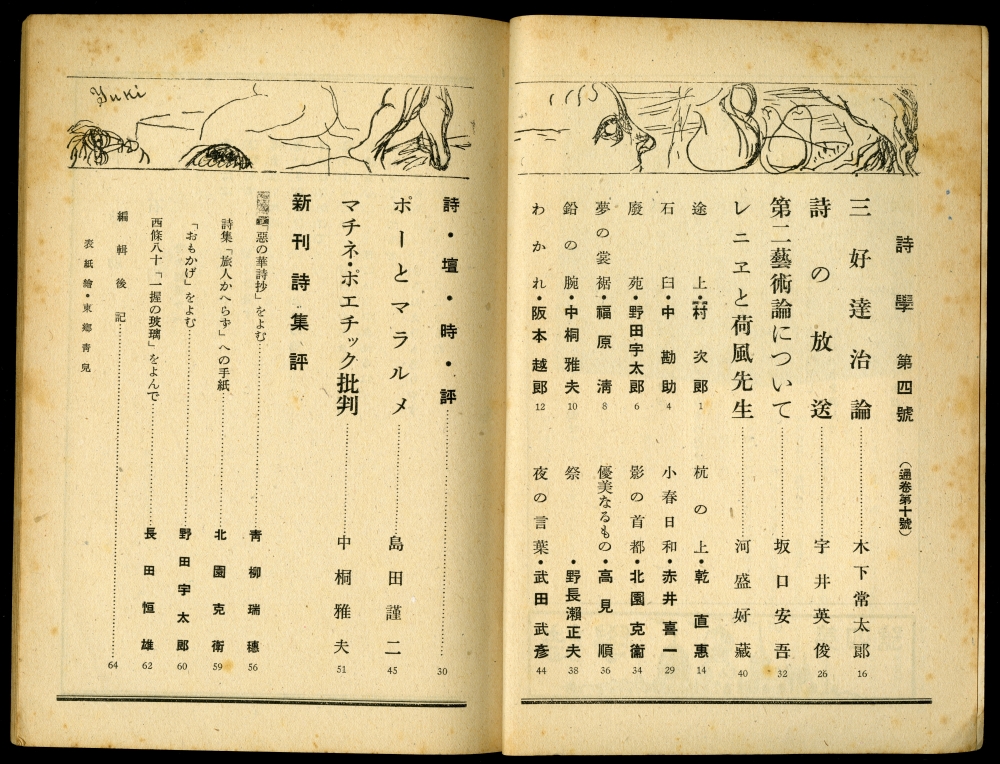 詩學 第四號 (通卷第十號)
三好達治論 木下常太郎 16
詩の放送 宇井英俊 26
第二藝術論について 坂口安吾 32
レニヱと荷風先生 河盛好藏 40
途上・村次郎 1
石臼・中勘助 4
廢苑・野田宇太郎 6
夢の裳裾・福原清 8
鉛の腕・中桐雅夫 10
わかれ・阪本越郎 12
杭の上・乾直惠 14
小春日和・赤井喜一 29
影の首都・北園克衞 34
優美なるもの・高見順 36
祭・野長瀨正夫 38
夜の言葉・武田武彥 44
Yuki
詩・壇・時・評 30
ポーとマラルメ 島田謹二 45
マチネ・ポエチック批判 中桐雅夫 51
新刊詩集評
「惡の華詩抄」をよむ 靑柳瑞穗 56
詩集「旅人かへらず」への手紙 北園克衞 59
「おもかげ」をよむ 野田宇太郎 60
西條八十「一握の玻璃」をよんで 長田恒雄 62
編輯後記 64
表紙繪・東鄕靑兒